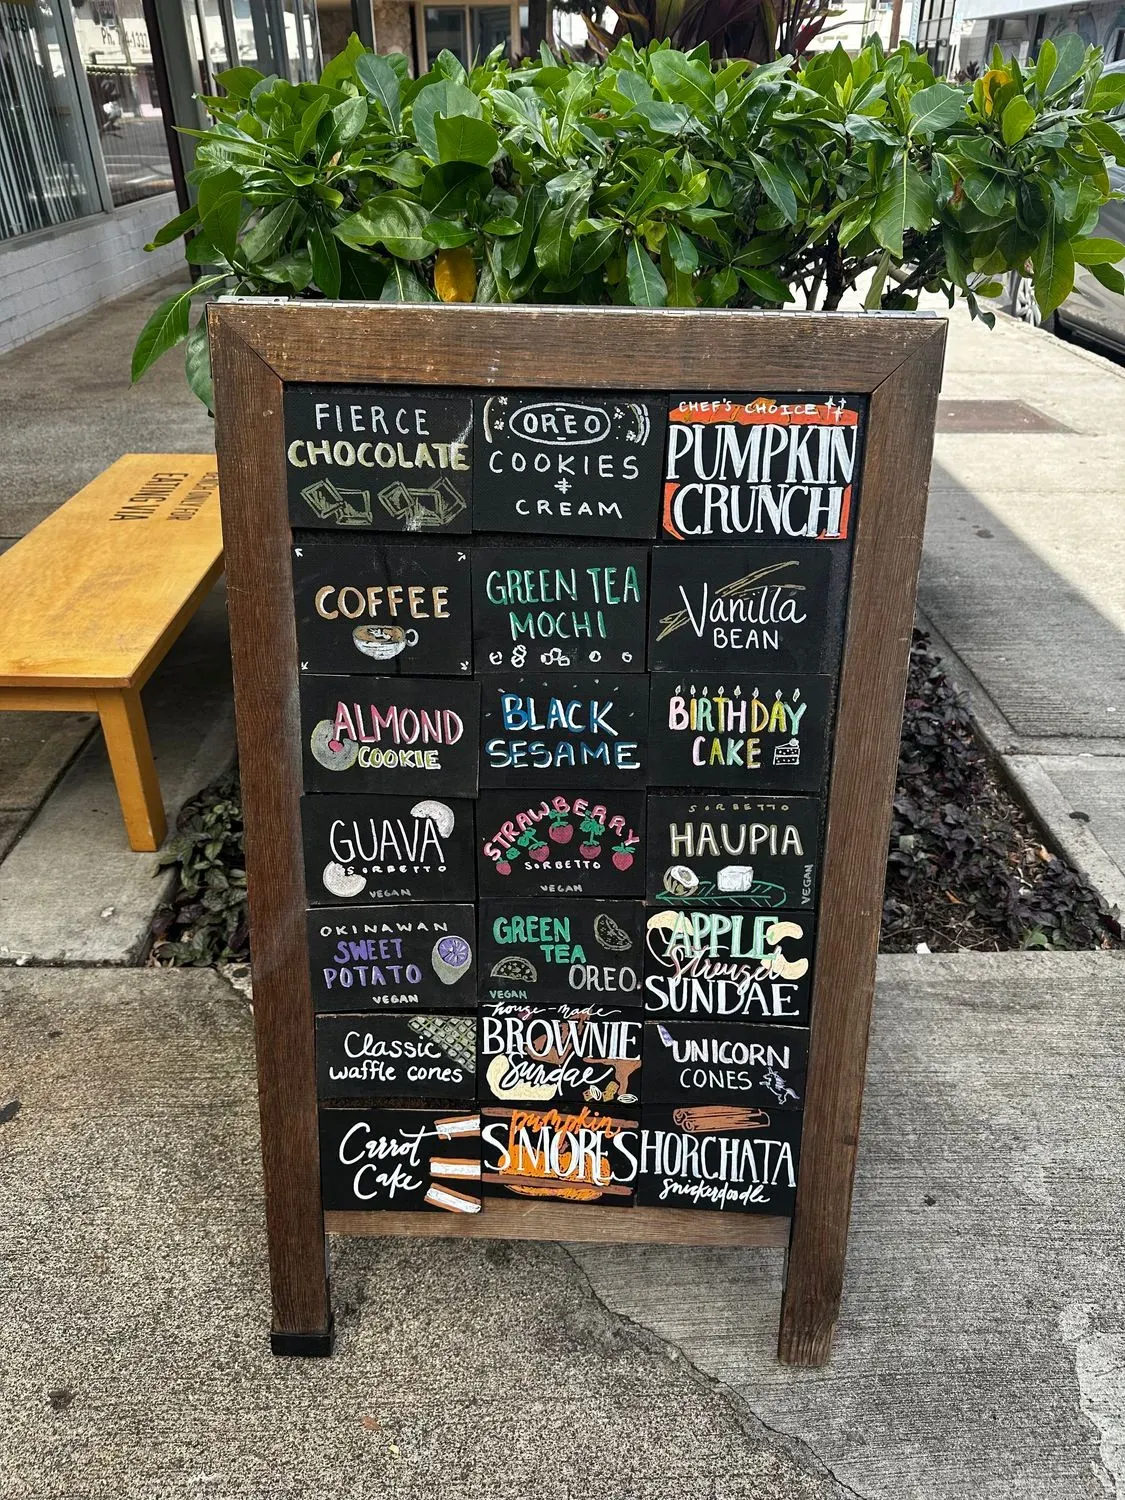 FIERCE
CHOCOLATE
OREO
COOKIES
&
CREAM
CHEF'S CHOICE
PUMPKIN
CRUNCH
COFFEE
GREEN TEA
MOCHI
Vanilla
BEAN
ALMOND
COOKIE
BLACK
SESAME
BIRTHDAY
CAKE
GUAVA
SORBETTO
VEGAN
STRAWBERRY
SORBETTO
VEGAN
SORBETTO
HAUPIA
VEGAN
OKINAWAN
SWEET
POTATO
VEGAN
GREEN
TEA
OREO
VEGAN
APPLE
Streusel
SUNDAE
Classic
waffle cones
house-made
BROWNIE
Sundae
UNICORN
CONES
Carrot
Cake
pumpkin
S'MORES
HORCHATA
snickerdoodle